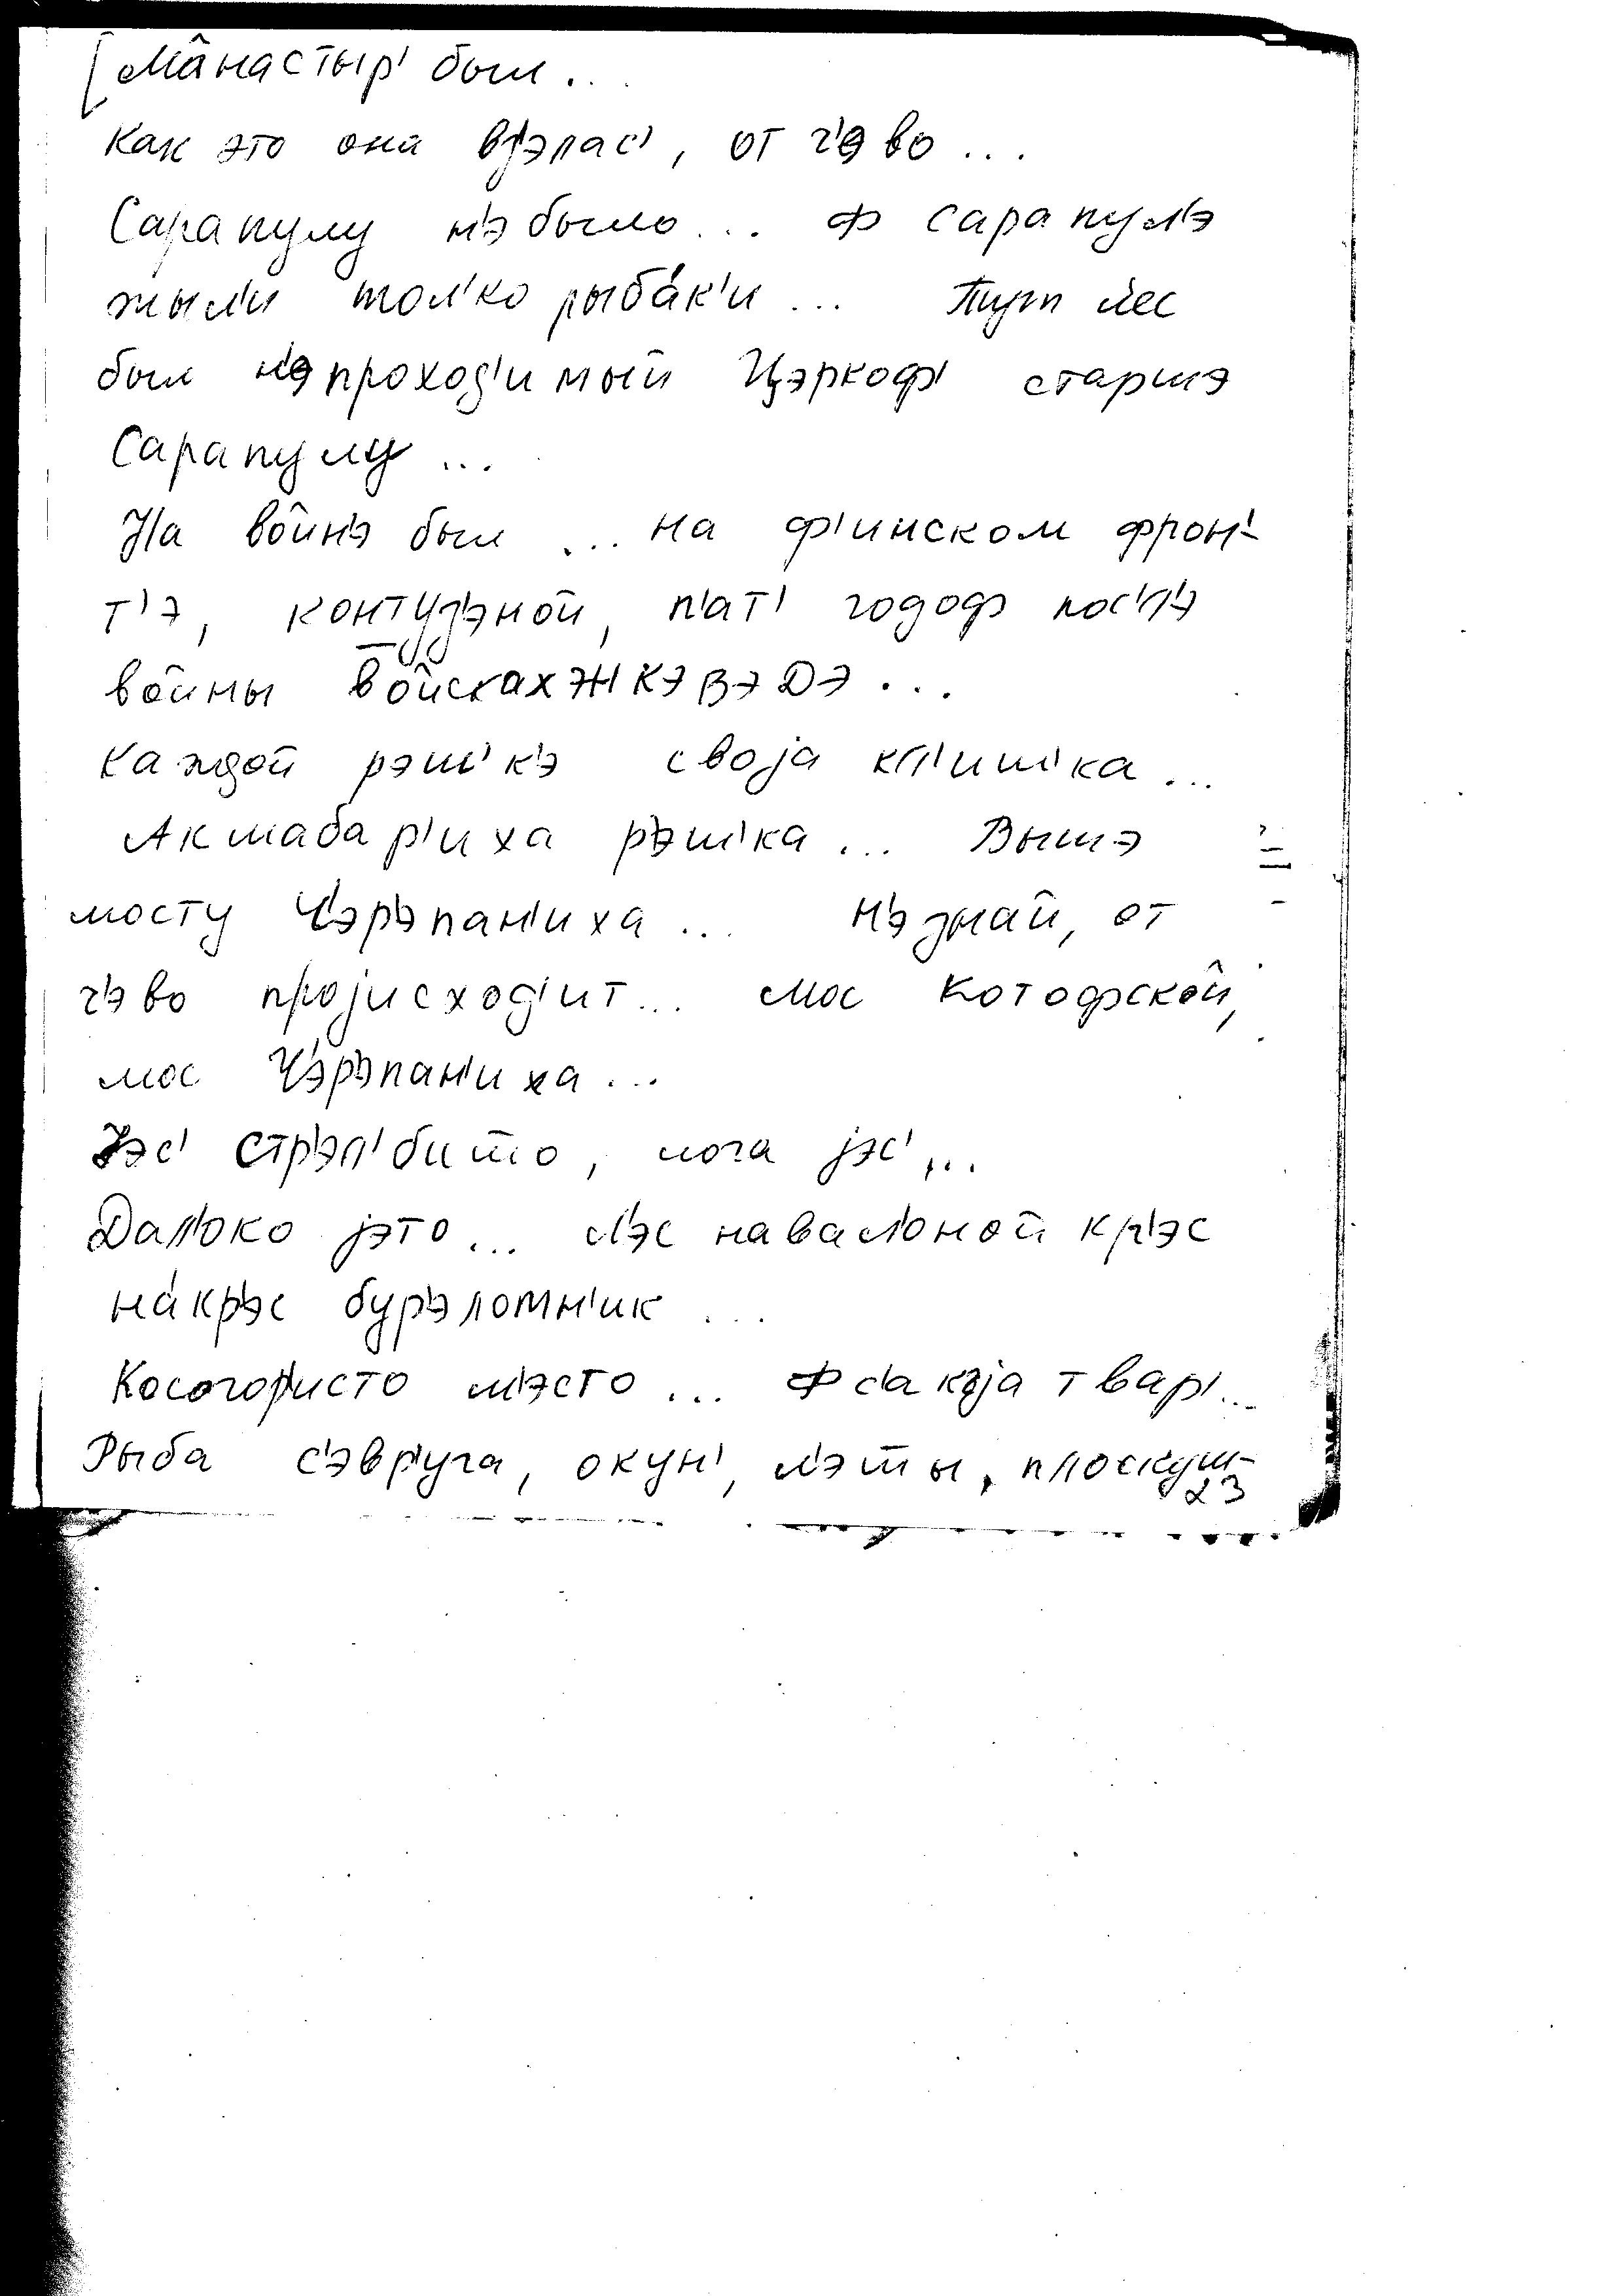 [Ма̂настыр' был...
как это она вз'элас', от ч'э во...
Сарапулу н'э было... Ф сарапул'э
жыл'и тол'ко рыба́к'и... Тут лес
был н'э проход'имый Цэркоф' старшэ
Сарапулу...
На во̂йн'э был ... на ф'инском фрон'-
т'э, контуз'эной, п'ат' годоф посл'э
во̂йны во̂йсках ЭНКЭВЭДЭ...
каждой рэч'к'э своја кл'ич'ка...
Акшабар'иха рэч'ка... Вышэ
мосту Ч'эр'эпан'иха... н'э знай, от
ч'э во происход'ит... мос Котофской,
мос Ч'эр'эпан'иха...
Јэс' стр'эл'битшо, лога јэс'...
Дал'око јэто... л'эс навал'оной кр'эс
на́кр'эс бур'эломн'ик...
Косогор'исто м'эсто... Ф с'акоја твар'...
Рыба с'эвр'уга, окун', л'эшшы, плоскуш-
23